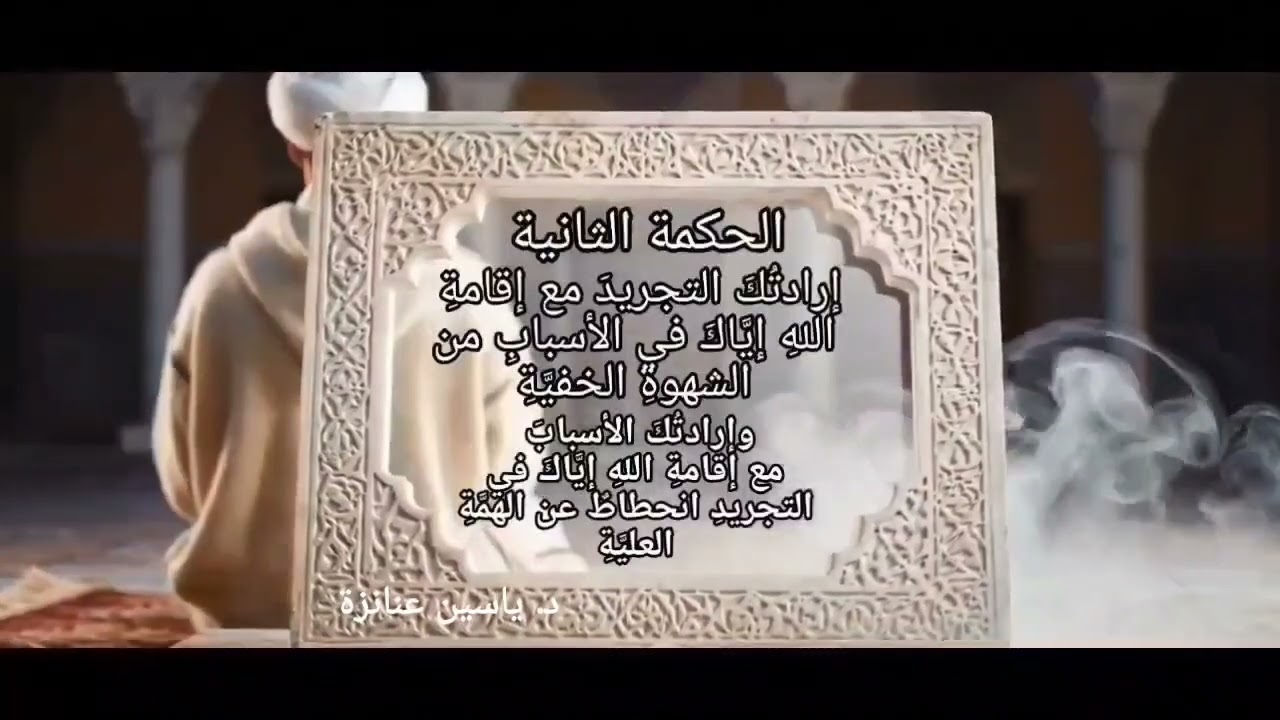 الحكمة الثانية
إرادتُكَ التجريدَ مع إقامةِ
اللهِ إيَّاكَ في الأسبابِ من
الشهوةِ الخفيَّةِ
وإرادتُكَ الأسبابَ
مع إقامةِ اللهِ إيَّاكَ في
التجريدِ انحطاطٌ عن الهمَّةِ
العليَّةِ
د. ياسين عنانزة